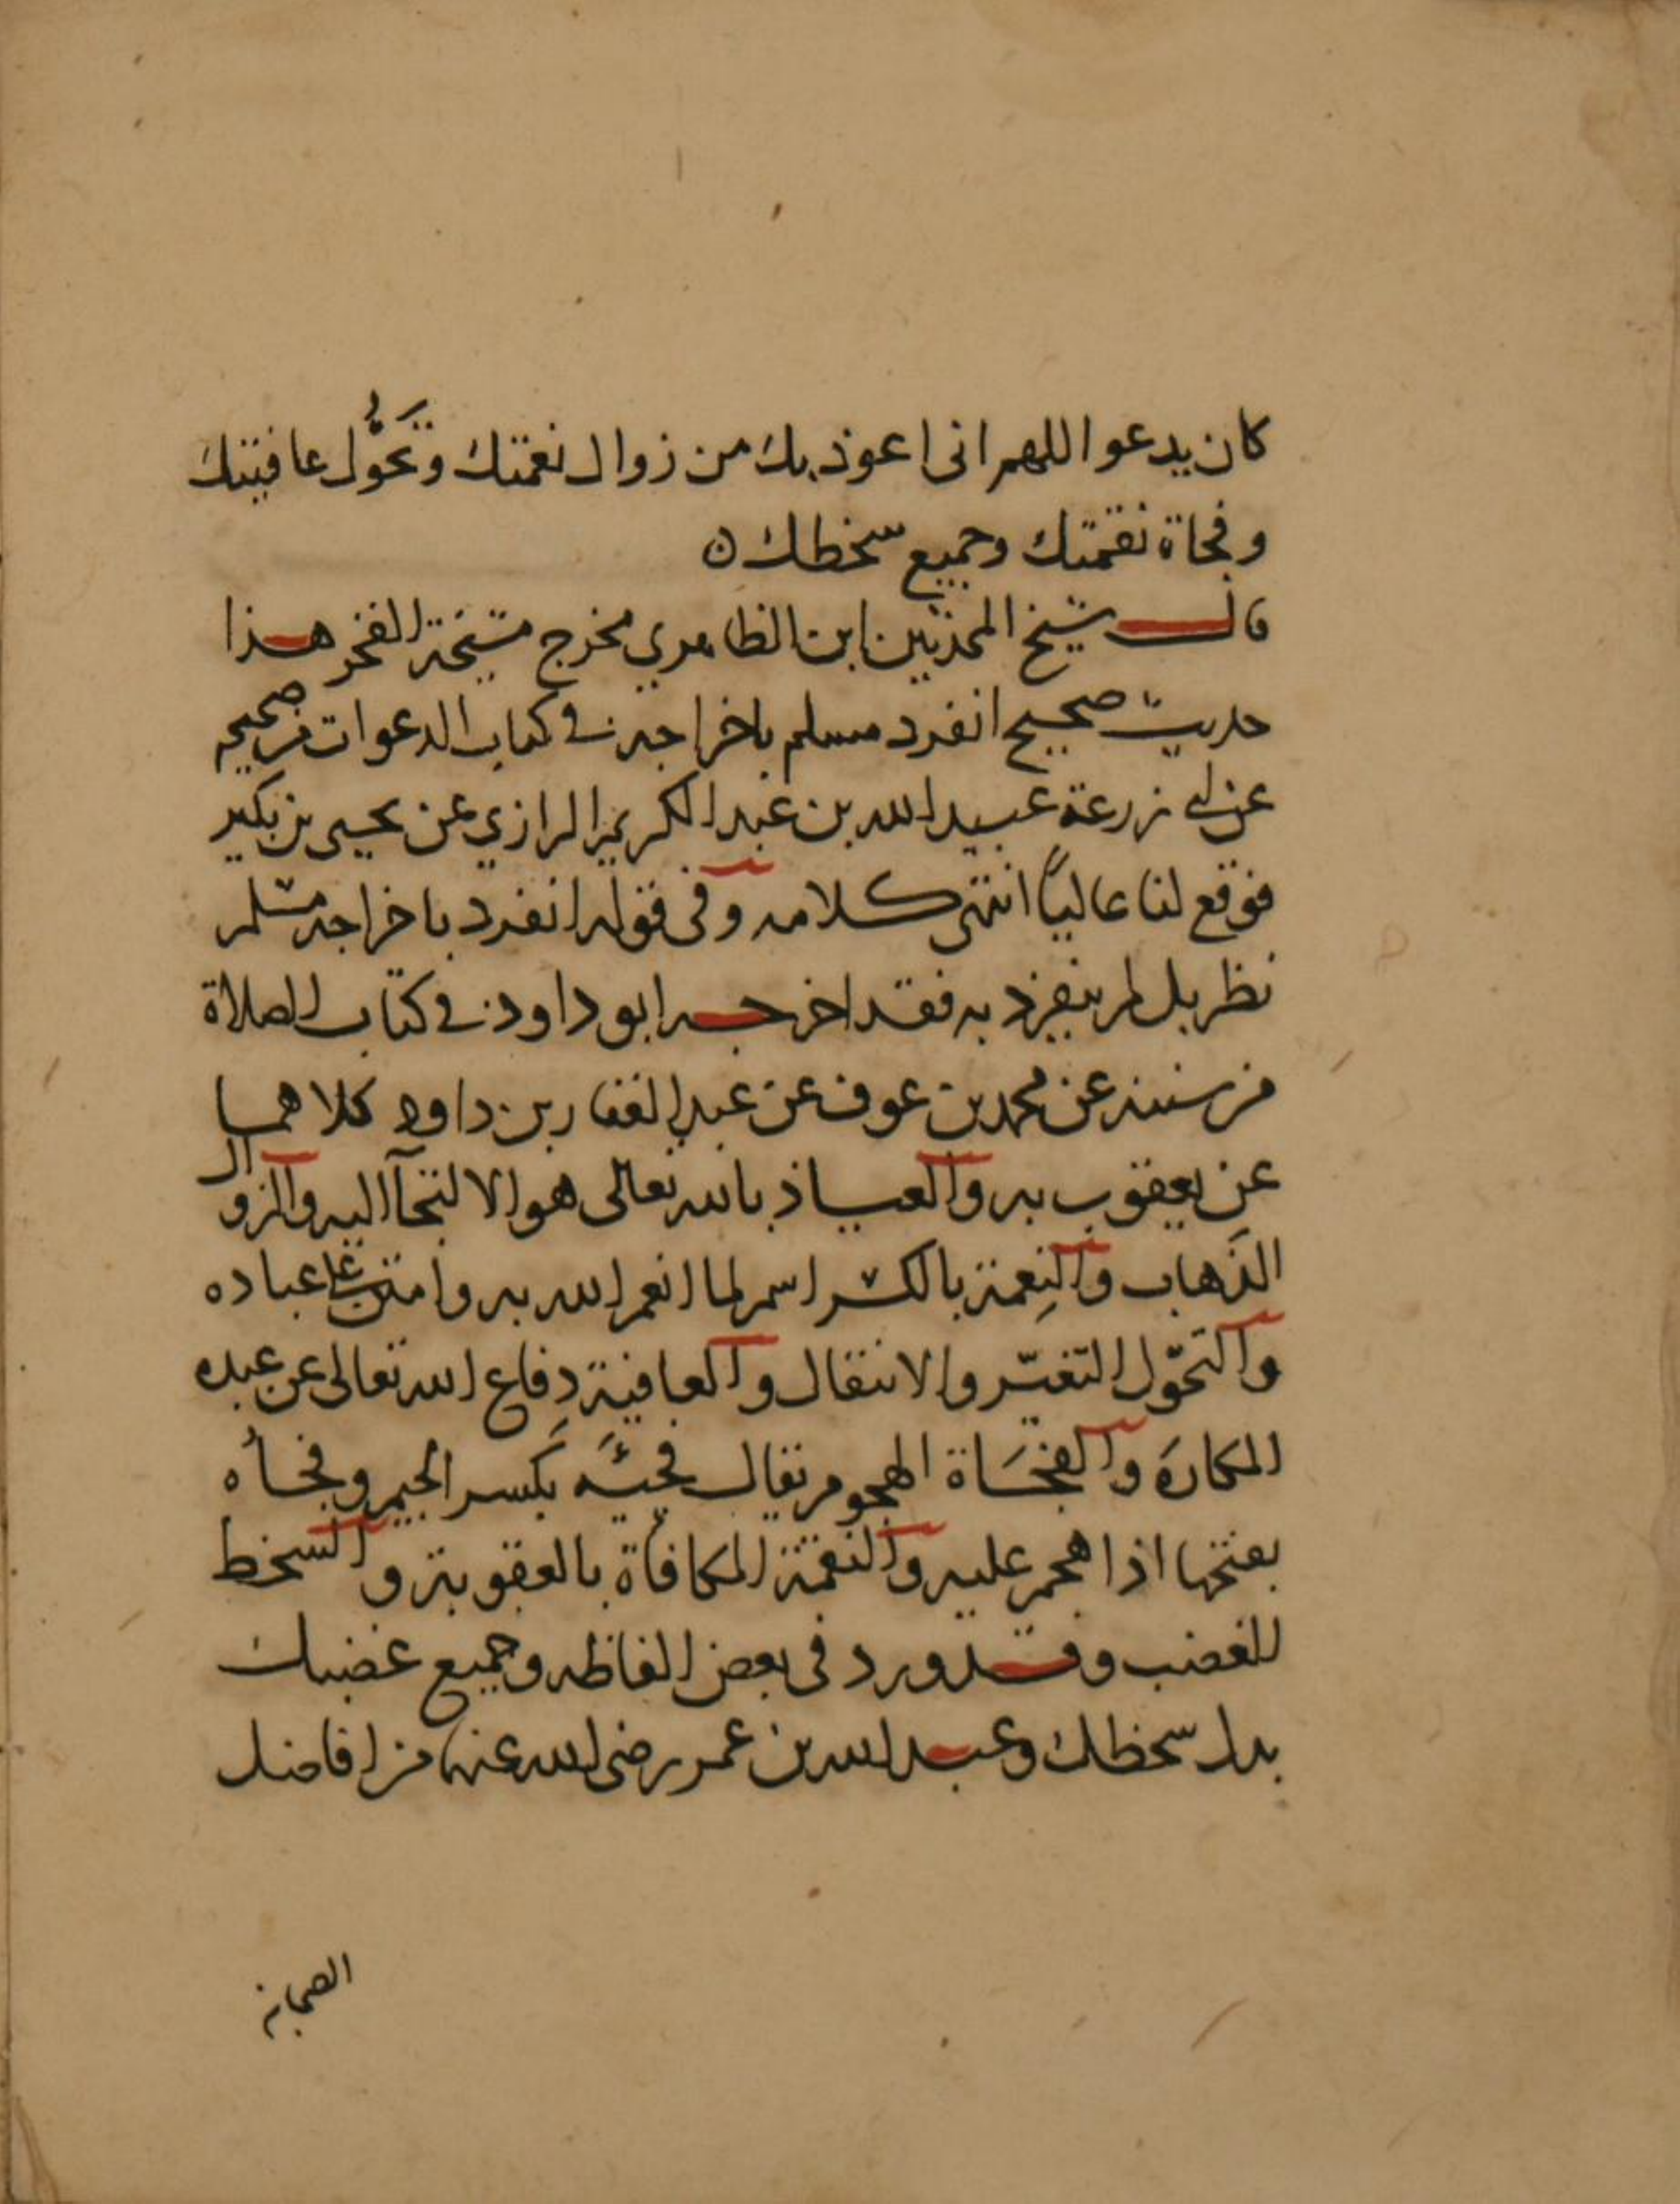 كان يدعوا اللهم انى اعوذ بك من زوال نعمتك وتَحَوُّل عافيتك
وفجاة نقمتك وجميع سخطك ن
قال شيخ المحدثين ابن الظاهري مخرج مشيخة الفخر هذا
حديث صحيح انفرد مسلم باخراجه في كتاب الدعوات من صحيحه
عن ابي زرعة عبيد الله بن عبد الكريم الرازي عن يحيى بن بكير
فوقع لنا عالياً انتهى كلامه وفى قوله انفرد باخراجه مسلم
نظر بل لم ينفرد به فقد اخرجه ابو داود في كتاب الصلاة
من سننه عن محمد بن عوف عن عبد الغفار بن داود كلاهما
عن يعقوب به والعياذ بالله تعالى هو الالتجآ اليه والزوال
الذَهاب والنِعمة بالكسر اسم لما انعم الله به وامتن على عباده
والتحوّل التغيّر والانتقال والعافية دِفاع الله تعالى عن عبده
المكارَه والفجَاة الهجوم يقال فَجِئَه بكسر الجيم وفجأه
بفتحها اذا هجم عليه والنقمة المكافأة بالعقوبة والسخط
للغضب وقد ورد فى بعض الفاظه وجميع غضبك
بدل سخطك وعبد الله بن عمر رضى الله عنهما من افاضل
الصحابة